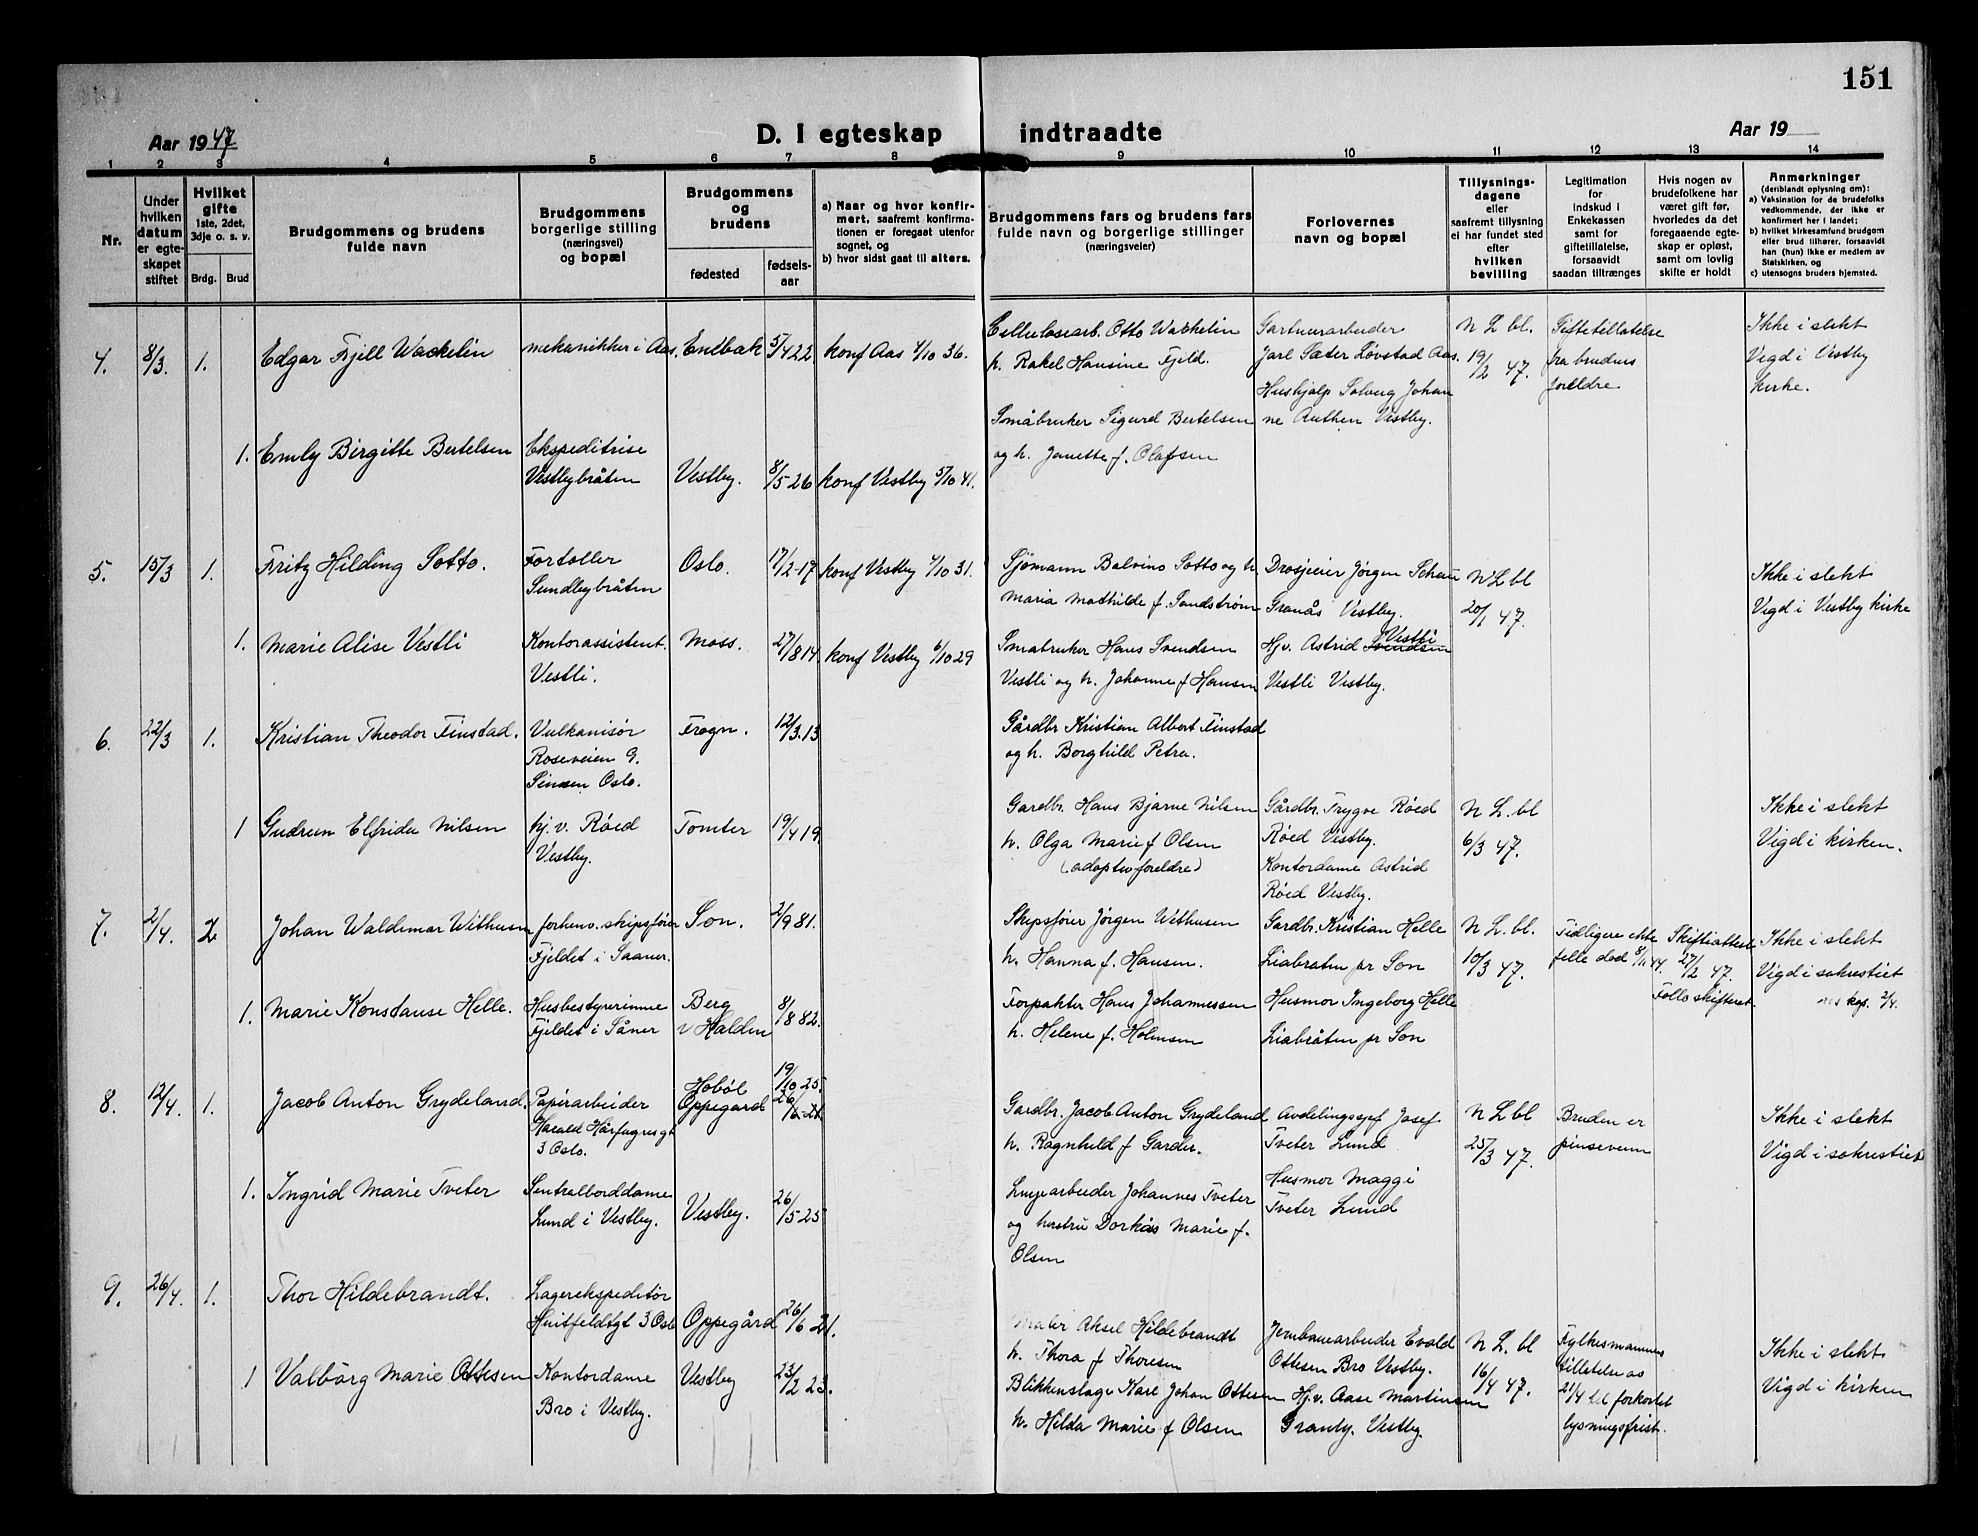 151
Aar 1947
D. I egteskap indtraadte
Aar 19
1 2 3 4 5 6 7 8 9 10 11 12 13 14
Nr.
Under hvilken datum er egteskapet stiftet
Hvilket gifte 1ste, 2det, 3dje o. s. v.
Brdg. Brud
Brudgommens og brudens fulde navn
Brudgommens borgerlige stilling (næringsvei) og bopæl
Brudgommens og brudens
fødested
fødsels-aar
a) Naar og hvor konfirmert, saafremt konfirmationen er foregaat utenfor sognet, og
b) hvor sidst gaat til alters.
Brudgommens fars og brudens fars fulde navn og borgerlige stillinger (næringsveier)
Forlovernes navn og bopæl
Tillysningsdagene eller saafremt tillysning ei har fundet sted efter hvilken bevilling
Legitimation for indskud i Enkekassen samt for giftetillatelse, forsaavidt saadan tiltrænges
Hvis nogen av brudefolkene har været gift før, hvorledes da det foregaaende egteskap er opløst, samt om lovlig skifte er holdt
Anmerkninger
(deriblandt oplysning om):
a) Vaksination for de brudefolks vedkommende, der ikke er konfirmert her i landet;
b) hvilket kirkesamfund brudgom eller brud tilhører, forsaavidt han (hun) ikke er medlem av Statskirken, og
c) utensogns bruders hjemsted.
4. 8/3. 1. Edgar Fjell Wackelin
mekanikker i Aas. Enebak 5/4 22 konf Aas 4/10 36.
Cellulosearb. Otto Wackelin
h. Rakel Hansine Fjeld.
Gartnerarbeider
Jarl Sæter Løvstad Aas.
Hushjalp Solveig Johan
ne Authen Vestby.
N L bl.
19/2 47.
Giftetillatelse
fra brudens
foreldre
Ikke i slekt
Vigd i Vestby
kirke.
1. Emly Birgitte Bertelsen
Ekspeditrise
Vestbybråten
Vestby. 8/5 26 konf Vestby 5/10 41.
Småbruker Sigurd Bertelsen
og h. Janette f. Olafsen
5. 15/3 1. Fritz Hilding Sotto.
Fortoller
Sundbybråten
Oslo. 17/2-17 konf Vestby 4/10 31.
Sjømann Balvino Sotto og h.
Maria Mathilde f. Sandstrøm
Drosjeeier Jørgen Schau
Granås Vestby.
N L bl
20/1 47.
Ikke i slekt
Vigd i Vestby kirke
1. Marie Alise Vestli
Kontorassistent.
Vestli.
Moss. 27/8 14. konf Vestby 6/10 29
Småbruker Hans Svendsen
Vestli og h. Johanne f Hansen
Vestli
Hj.v. Astrid Svendsen
Vestli Vestby.
6. 22/3 1. Kristian Theodor Finstad.
Vulkanisør
Roseveien 9.
Sinsen Oslo.
Frogn. 12/3.13
Gårdbr Kristian Albert Finstad
og h. Borghild Petra.
1 Gudrun Elfrida Nilsen
hj. v. Røed
Vestby.
Tomter 19/4 19.
Gardbr. Hans Bjarne Nilsen
h. Olga Marie f Olsen
(adoptivforeldre)
Gårdbr. Trygve Røed
Røed Vestby.
Kontordame Astrid
Røed Vestby.
N L. bl
6/3 47.
Ikke i slekt
Vigd i kirken.
7. 2/4. 2 Johan Waldemar Withusen
forhenv. skipsfører
Fjeldet i Saaner.
Son. 2/9 81.
Skipsfører Jørgen Wethusen
h. Hanna f. Hansen.
Gardbr. Kristian Helle
Liabråten pr Son
N L. bl.
10/3 47.
Tidligere ekte
felle død 8/11 44.
Skifteattest
27/2 47.
Follo skifteret.
Ikke i slekt
Vigd i sakrestiet
1. Marie Konstanse Helle.
Husbestyrerinne
Fjeldet i Såner
Berg
v Halden
8/8 82.
Forpakter Hans Johannessen
h. Helene f. Holmsen
Husmor Ingeborg Helle
Liabråten pr Son
8. 12/4. 1. Jacob Anton Grydeland.
Papirarbeider
Harald Hårfagres gt
3 Oslo.
Hobøl 19/10 25.
Oppegard
Gardbr. Jacob Anton Grydeland
h. Ragnhild f Garder.
Avdelingssjef Josef
Tveter Lund
N L bl
25/3 47.
Bruden er
pinsevenn
Ikke i slekt
Vigd i sakrestiet
1. Ingrid Marie Tveter
Sentralborddame
Lund i Vestby.
Vestby. 26/5 25
Linjearbeider Johannes Tveter
og hustru Dorkas Marie f.
Olsen
Husmor Maggi
Tveter Lund
9. 26/4. 1. Thor Hildebrandt.
Lagerekspeditør
Huitfeldtgt 3 Oslo
Oppegård 26/6 21.
Maler Aksel Hildebrandt
h. Thora f Thoresen
Jernbanearbeider Evald
Ottesen Bro Vestby.
N L. bl
16/4 47.
Fylkesmannens
tillatelse av
21/4 til forkortet
lysningsfrist.
Ikke i slekt
Vigd i kirken
1 Valborg Marie Ottesen
Kontordame
Bro i Vestby.
Vestby 23/2 23.
Blikkenslager Karl Johan Ottesen
h. Hilda Marie f Olsen
Hj.v. Aase Martinsen
Granly. Vestby.